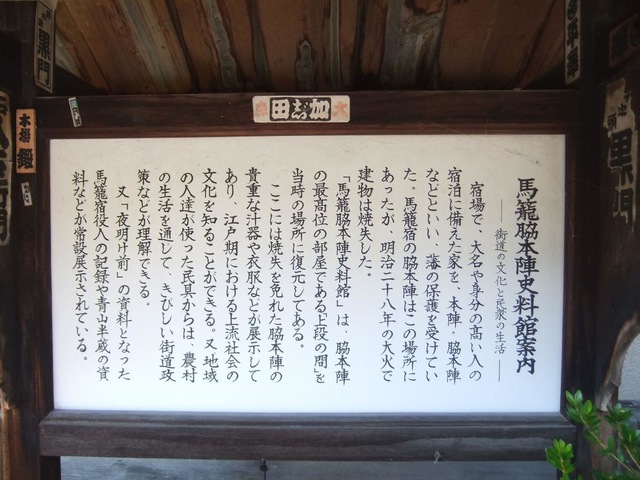 馬籠脇本陣史料館案内
── 街道の文化と民衆の生活 ──
宿場で、大名や身分の高い人の
宿泊に備えた家を、本陣・脇本陣
などといい、藩の保護を受けてい
た。馬籠宿の脇本陣はこの場所に
あったが、明治二十八年の大火で
建物は焼失した。
「馬籠脇本陣史料館」は、脇本陣
の最高位の部屋である「上段の間」を
当時の場所に復元してある。
ここには焼失を免れた脇本陣の
貴重な汁器や衣服などが展示して
あり、江戸期における上流社会の
文化を知ることができる。又地域
の人達が使った民具からは、農村
の生活を通して、きびしい街道攻
策などが理解できる。
又「夜明け前」の資料となった
馬籠宿役人の記録や青山半蔵の資
料などが常設展示されている。
加
田
黒門
本場